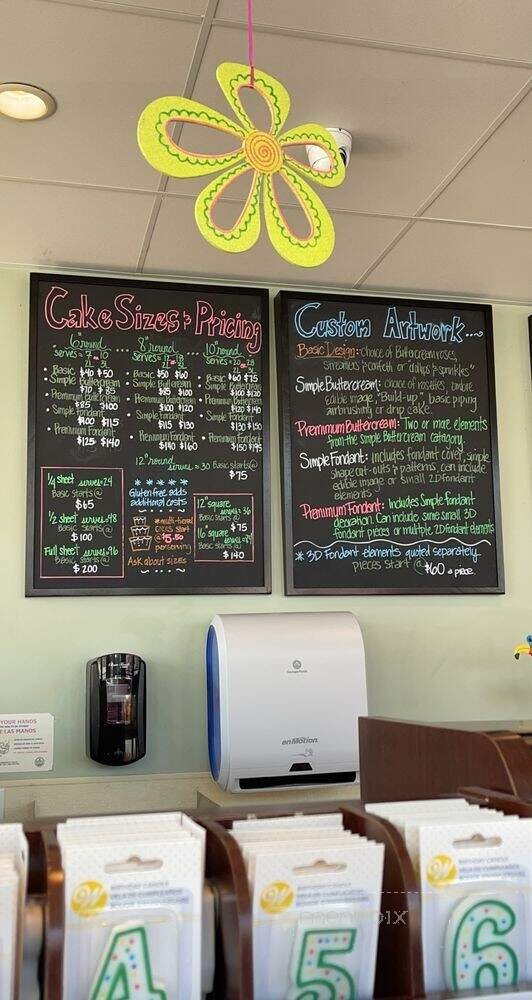 Cake Sizes & Pricing
6" round
8" round
10" round
• Basic $40 $50
• Basic $50 $60
• Basic $60 $75
Simple Buttercream
Simple Buttercream
Simple Buttercream
Premium Buttercream
Premium Buttercream
Premium Buttercream
$85 $100
$100 $120
$120 $140
Simple fondant
Simple fondant
Simple fondant
$100 $115
$115 $130
$130 $150
Premium Fondant
Premium Fondant
Premium Fondant
$125 $140
$140 $160
12" round serves = 30 Basic starts @
$75
1/4 sheet serves = 24
Basic starts @
$65
1/2 sheet serves = 48
Basic starts @
$100
Full sheet serves = 96
Basic starts @
$200
Gluten free adds
additional costs
* multi-tiered
cakes start
@ $5.50
per serving
Ask about sizes
12" square
serves = 36
Basic starts @
$75
16" square
Basic starts @
$140
Custom Artwork...
Basic Design: choice of Buttercream roses,
streamers & confetti or dollops & sprinkles"
Simple Buttercream: choice of rosettes, ombre
edible image, "Build-up", basic piping
airbrushing or drip cake.
Premium Buttercream: Two or more elements
from the simple Buttercream category.
Simple Fondant: includes fondant cover, simple
shape cut-outs & patterns, can include
edible image or small 2D fondant
elements -
Premium Fondant: Includes Simple fondant
decoration. Can include some small 3D
fondant pieces or multiple 2D fondant elements
* 3D Fondant elements quoted separately
pieces start @ $60 a piece.
YOUR HANDS
LAS MANOS
Georgia-Pacific
enMotion
BIRTHDAY CANDLE
BIRTHDAY CANDLE
BIRTHDAY CANDLE
4
5
6